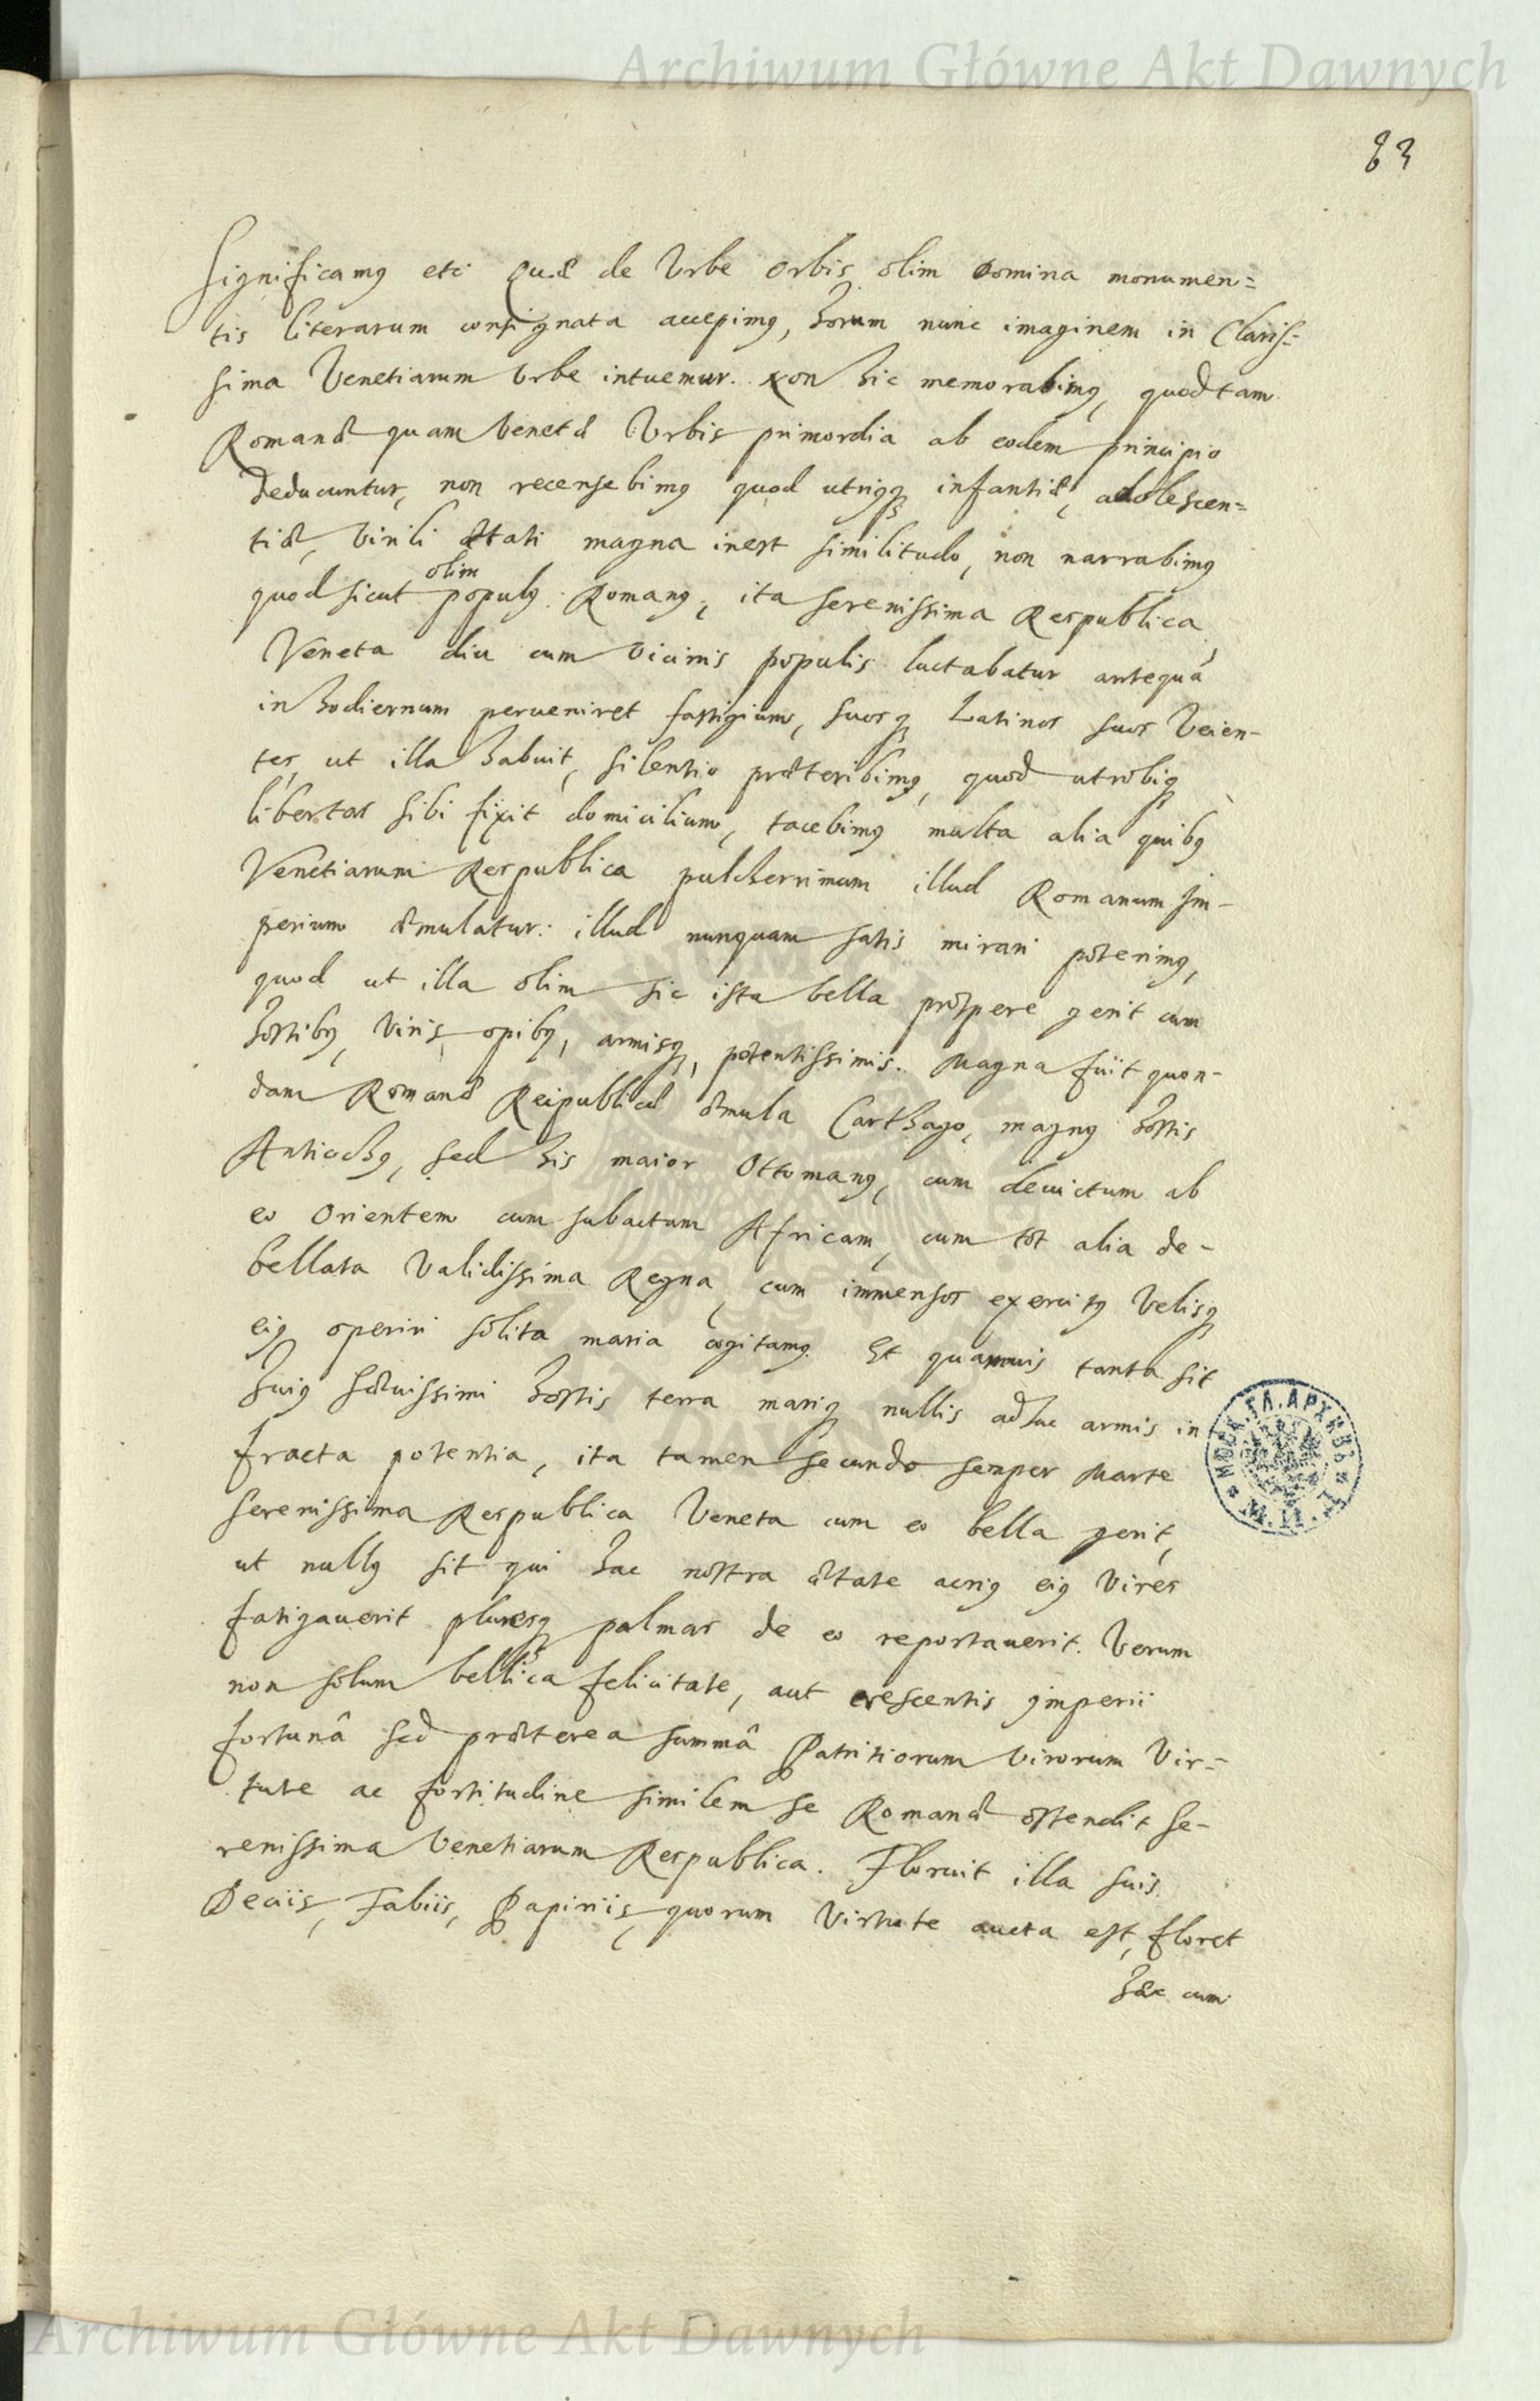 Archiwum Główne Akt Dawnych
83
Significamus etc Quæ de Urbe Orbis olim Domina monumen=
tis literarum consignata accepimus, horum nunc imaginem in Claris=
sima Venetiarum Urbe intuemur. Non hic memorabimus, quod tam
Romanæ quam Venetæ Urbis primordia ab eodem principio
deducuntur, non recensebimus quod utriusque infantiæ, adolescen=
tiæ, virili ætati magna inest similitudo, non narrabimus
quod sicut olim populus Romanus, ita Serenissima Respublica
Veneta diu cum vicinis populis luctabatur antequã
in hodiernum perveniret fastigium, suosque Latinos suos Veien-
tes, ut illa habuit, silentio præteribimus, quod utrobique
libertas sibi fixit domicilium, tacebimus multa alia quibus
Venetiarum Respublica pulcherrimum illud Romanum Im-
perium æmulatur: illud nunquam satis mirari poterimus,
quod ut illa olim sic ista bella prospere gerit cum
hostibus, viris, opibus, armisque, potentissimis. Magna fuit quon-
dam Romanæ Reipublicæ æmula Carthago, magnus hostis
Antiochus, sed his maior Ottomanus, cum devictum ab
eo Orientem cum subactam Africam, cum tot alia de-
bellata validissima Regna, cum immensos exercitus velisque
eius operiri solita maria cogitamus. Et quamvis tanta sit
huius sævissimi hostis terra marique nullis adhuc armis in-
fracta potentia, ita tamen secundo semper Marte
Serenissima Respublica Veneta cum eo bella gerit,
ut nullus sit qui hac nostra ætate acrius eius vires
fatigaverit pluresque palmas de eo reportaverit. Verum
non solum bellica felicitate, aut crescentis imperii
fortunâ sed præterea summâ Patritiorum virorum vir=
tute ac fortitudine similem se Romanæ ostendit Se-
renissima Venetiarum Respublica. Floruit illa suis
Deciis, Fabiis, Papiriis, quorum virtute aucta est, floret
hæc cum
Archiwum Główne Akt Dawnych